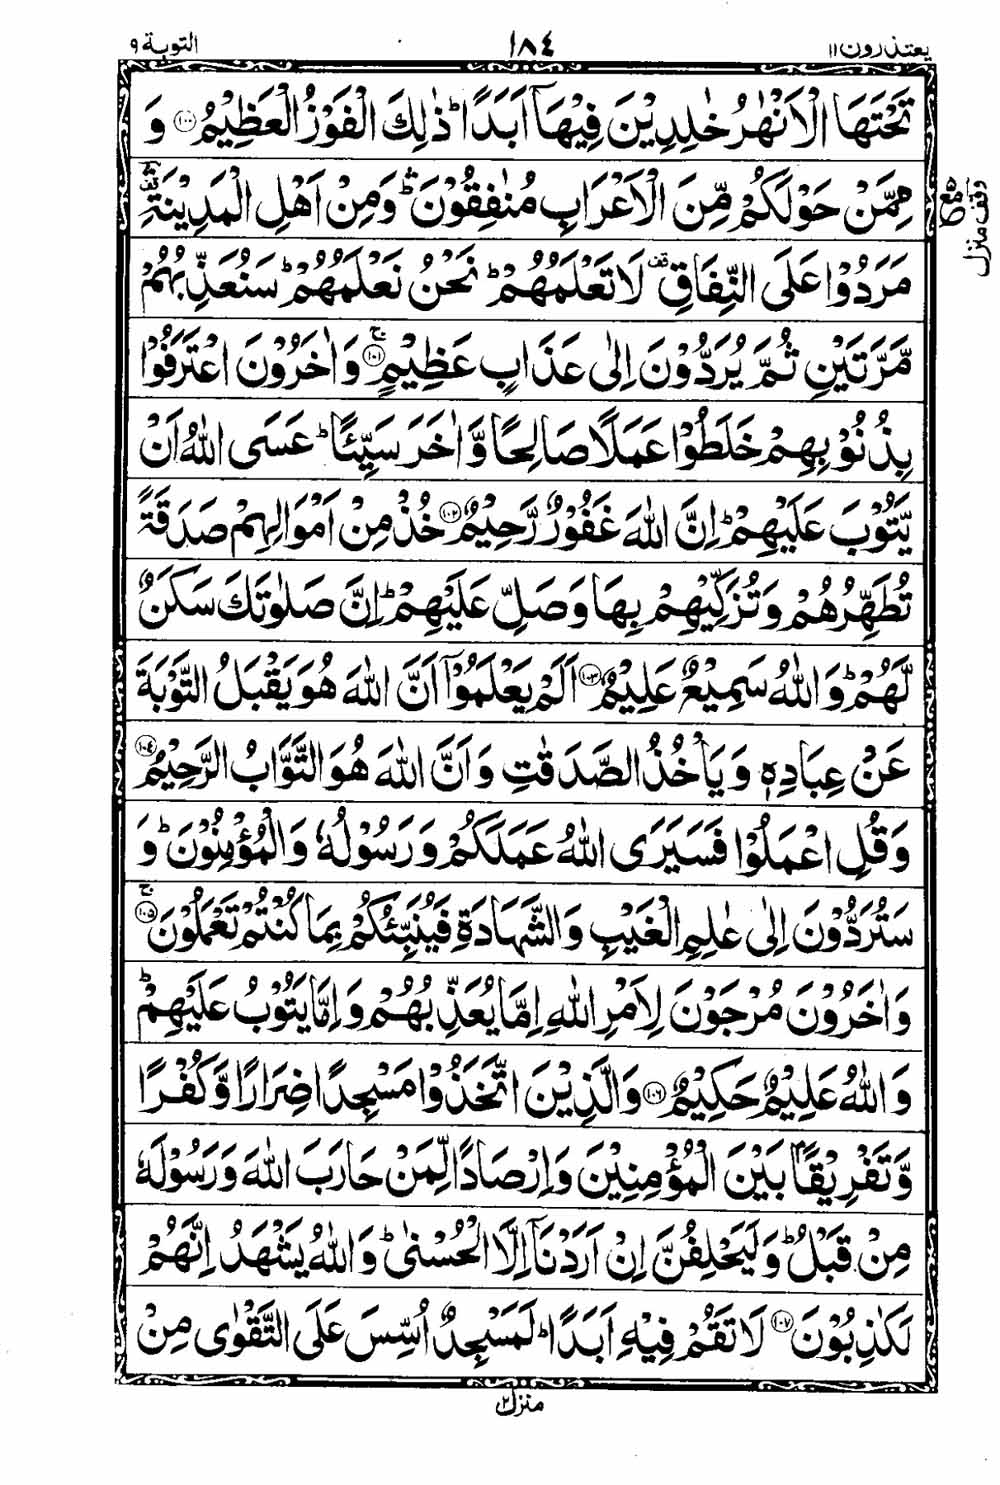 يعتذرون ١١ ١٨٤ التوبة ٩
تَحْتَهَا الْاَنْهٰرُ خٰلِدِيْنَ فِيْهَاۤ اَبَدًا ؕ ذٰلِكَ الْفَوْزُ الْعَظِيْمُ ﴿١٠٠﴾ وَ
مِمَّنْ حَوْلَكُمْ مِّنَ الْاَعْرَابِ مُنٰفِقُوْنَ ۛؕ وَمِنْ اَهْلِ الْمَدِيْنَةِ ۛؔقف
مَرَدُوْا عَلَى النِّفَاقِ قف لَا تَعْلَمُهُمْ ؕ نَحْنُ نَعْلَمُهُمْ ؕ سَنُعَذِّبُهُمْ
مَّرَّتَيْنِ ثُمَّ يُرَدُّوْنَ اِلٰى عَذَابٍ عَظِيْمٍ ﴿١٠١﴾ۚ وَاٰخَرُوْنَ اعْتَرَفُوْا
بِذُنُوْبِهِمْ خَلَطُوْا عَمَلًا صَالِحًا وَّاٰخَرَ سَيِّئًا ؕ عَسَى اللّٰهُ اَنْ
يَّتُوْبَ عَلَيْهِمْ ؕ اِنَّ اللّٰهَ غَفُوْرٌ رَّحِيْمٌ ﴿١٠٢﴾ خُذْ مِنْ اَمْوَالِهِمْ صَدَقَةً
تُطَهِّرُهُمْ وَتُزَكِّيْهِمْ بِهَا وَصَلِّ عَلَيْهِمْ ؕ اِنَّ صَلٰوتَكَ سَكَنٌ
لَّهُمْ ؕ وَاللّٰهُ سَمِيْعٌ عَلِيْمٌ ﴿١٠٣﴾ اَلَمْ يَعْلَمُوْۤا اَنَّ اللّٰهَ هُوَ يَقْبَلُ التَّوْبَةَ
عَنْ عِبَادِهٖ وَيَاْخُذُ الصَّدَقٰتِ وَاَنَّ اللّٰهَ هُوَ التَّوَّابُ الرَّحِيْمُ ﴿١٠٤﴾
وَقُلِ اعْمَلُوْا فَسَيَرَى اللّٰهُ عَمَلَكُمْ وَرَسُوْلُهٗ وَالْمُؤْمِنُوْنَ ؕ وَ
سَتُرَدُّوْنَ اِلٰى عٰلِمِ الْغَيْبِ وَالشَّهَادَةِ فَيُنَبِّئُكُمْ بِمَا كُنْتُمْ تَعْمَلُوْنَ ﴿١٠٥﴾ۚ
وَاٰخَرُوْنَ مُرْجَوْنَ لِاَمْرِ اللّٰهِ اِمَّا يُعَذِّبُهُمْ وَاِمَّا يَتُوْبُ عَلَيْهِمْ ؕ
وَاللّٰهُ عَلِيْمٌ حَكِيْمٌ ﴿١٠٦﴾ وَالَّذِيْنَ اتَّخَذُوْا مَسْجِدًا ضِرَارًا وَّكُفْرًا
وَّتَفْرِيْقًۢا بَيْنَ الْمُؤْمِنِيْنَ وَاِرْصَادًا لِّمَنْ حَارَبَ اللّٰهَ وَرَسُوْلَهٗ
مِنْ قَبْلُ ؕ وَلَيَحْلِفُنَّ اِنْ اَرَدْنَاۤ اِلَّا الْحُسْنٰى ؕ وَاللّٰهُ يَشْهَدُ اِنَّهُمْ
لَكٰذِبُوْنَ ﴿١٠٧﴾ لَا تَقُمْ فِيْهِ اَبَدًا ؕ لَمَسْجِدٌ اُسِّسَ عَلَى التَّقْوٰى مِنْ
منزل ٢
وقف منزل